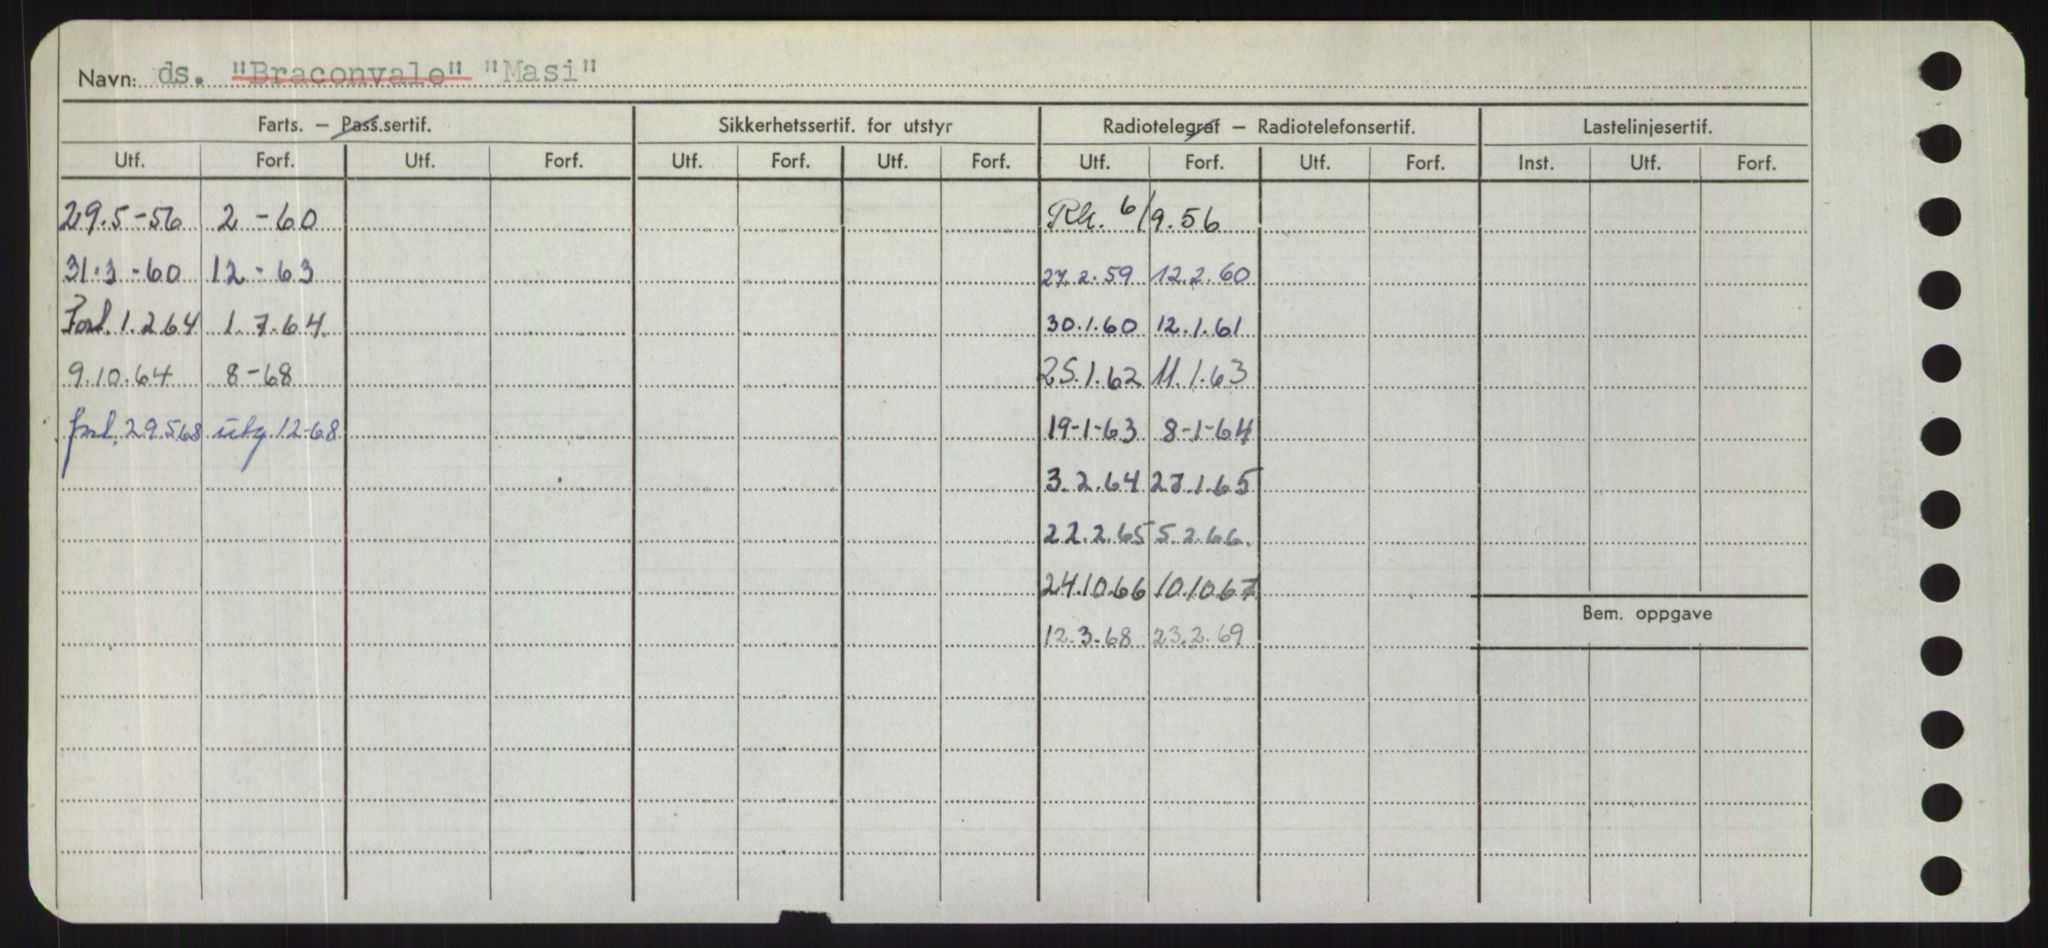 Navn: ds. "Braconvale" "Masi"
Farts. — Pass.sertif. Sikkerhetssertif. for utstyr Radiotelegraf — Radiotelefonsertif. Lastelinjesertif.
Utf. Forf. Utf. Forf. Utf. Forf. Utf. Forf. Utf. Forf. Utf. Forf. Inst. Utf. Forf.
29.5-56 2-60 6/9.56
31.3-60 12-63 27.2.59 12.2.60
Forl. 1.2.64 1.7.64. 30.1.60 12.1.61
9.10.64 8-68 25.1.62 11.1.63
forl. 29.5.68 utg. 12-68 19-1-63 8-1-64
3.2.64 27.1.65
22.2.65 5.2.66.
24.10.66 10.10.67
Bem. oppgave
12.3.68 23.2.69